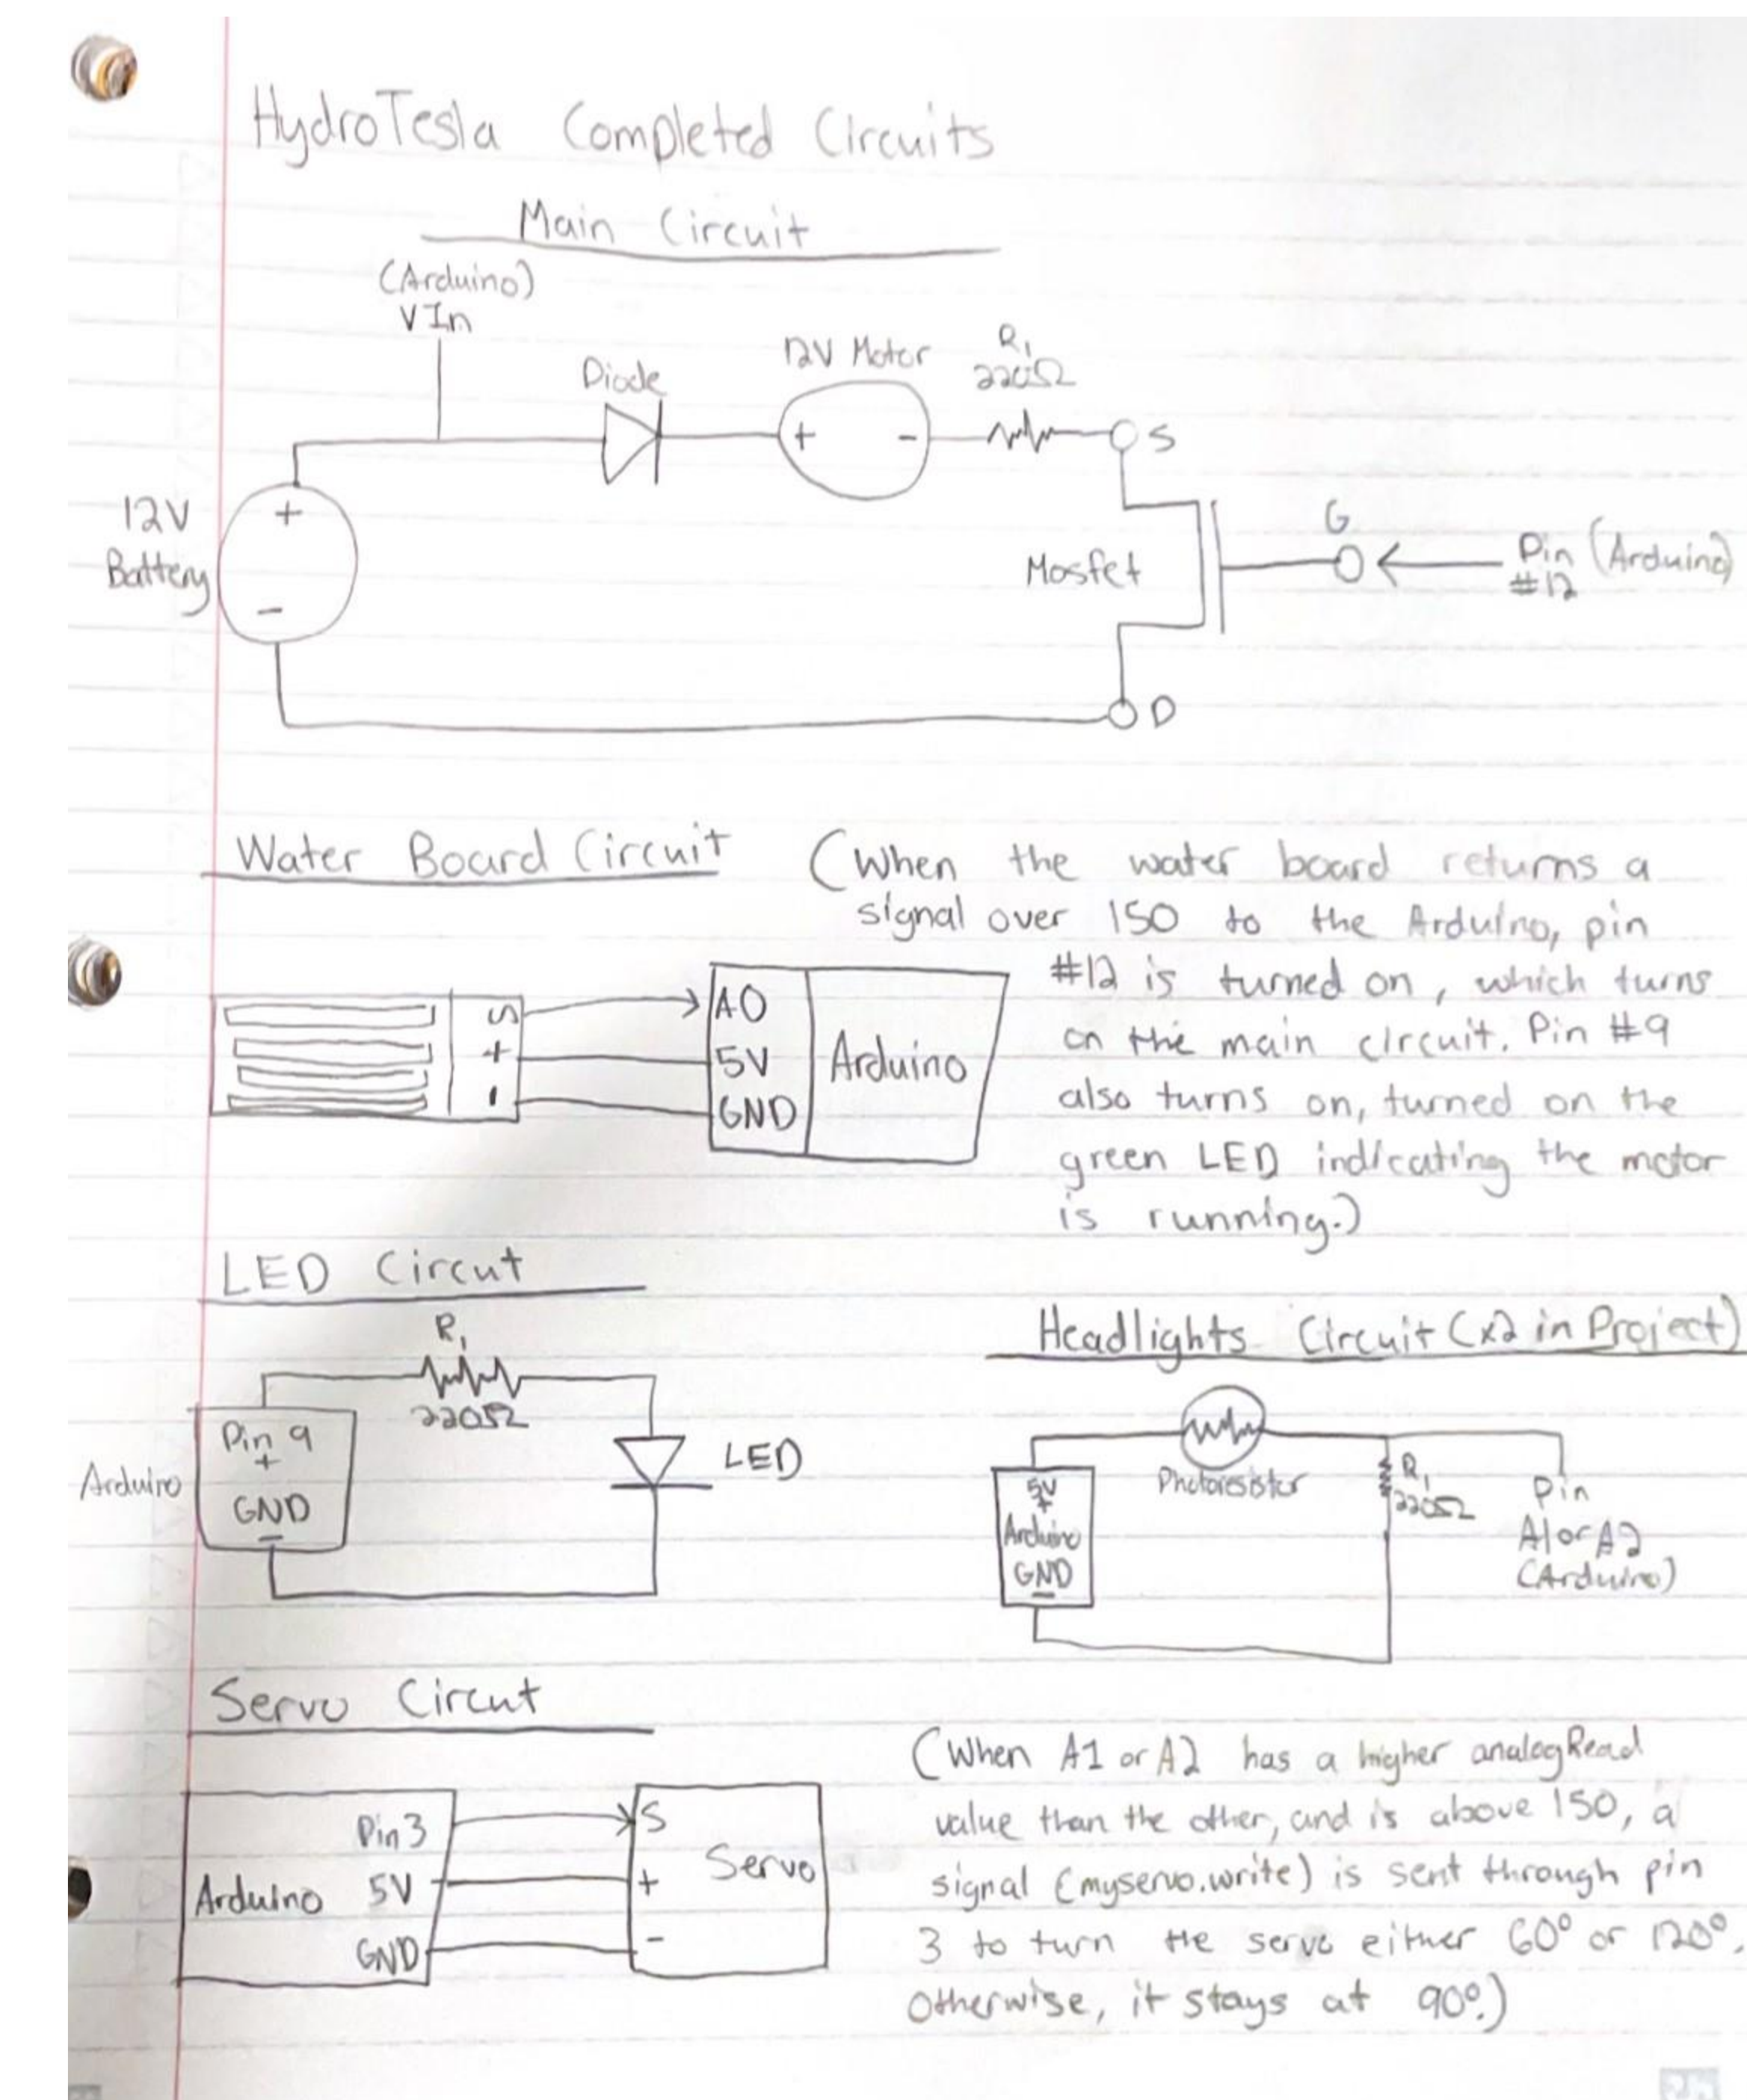 HydroTesla Completed Circuits
Main Circuit
(Arduino)
VIn
Diode
12V Motor
R1
220Ω
+ -
S
12V
Battery
+
-
Mosfet
G
Pin (Arduino)
#12
D
Water Board Circuit
(When the water board returns a
signal over 150 to the Arduino, pin
#12 is turned on, which turns
on the main circuit. Pin #9
also turns on, turned on the
green LED indicating the motor
is running.)
S
+
-
A0
5V
GND
Arduino
LED Circut
R1
220Ω
Arduino
Pin 9
+
GND
-
LED
Headlights Circuit (x2 in Project)
Photoresistor
5V
+
Arduino
GND
-
R1
220Ω
Pin
A1 or A2
(Arduino)
Servo Circut
Arduino
Pin 3
5V
GND
S
+
-
Servo
(When A1 or A2 has a higher analogRead
value than the other, and is above 150, a
signal (myservo.write) is sent through pin
3 to turn the servo either 60° or 120°,
otherwise, it stays at 90°.)